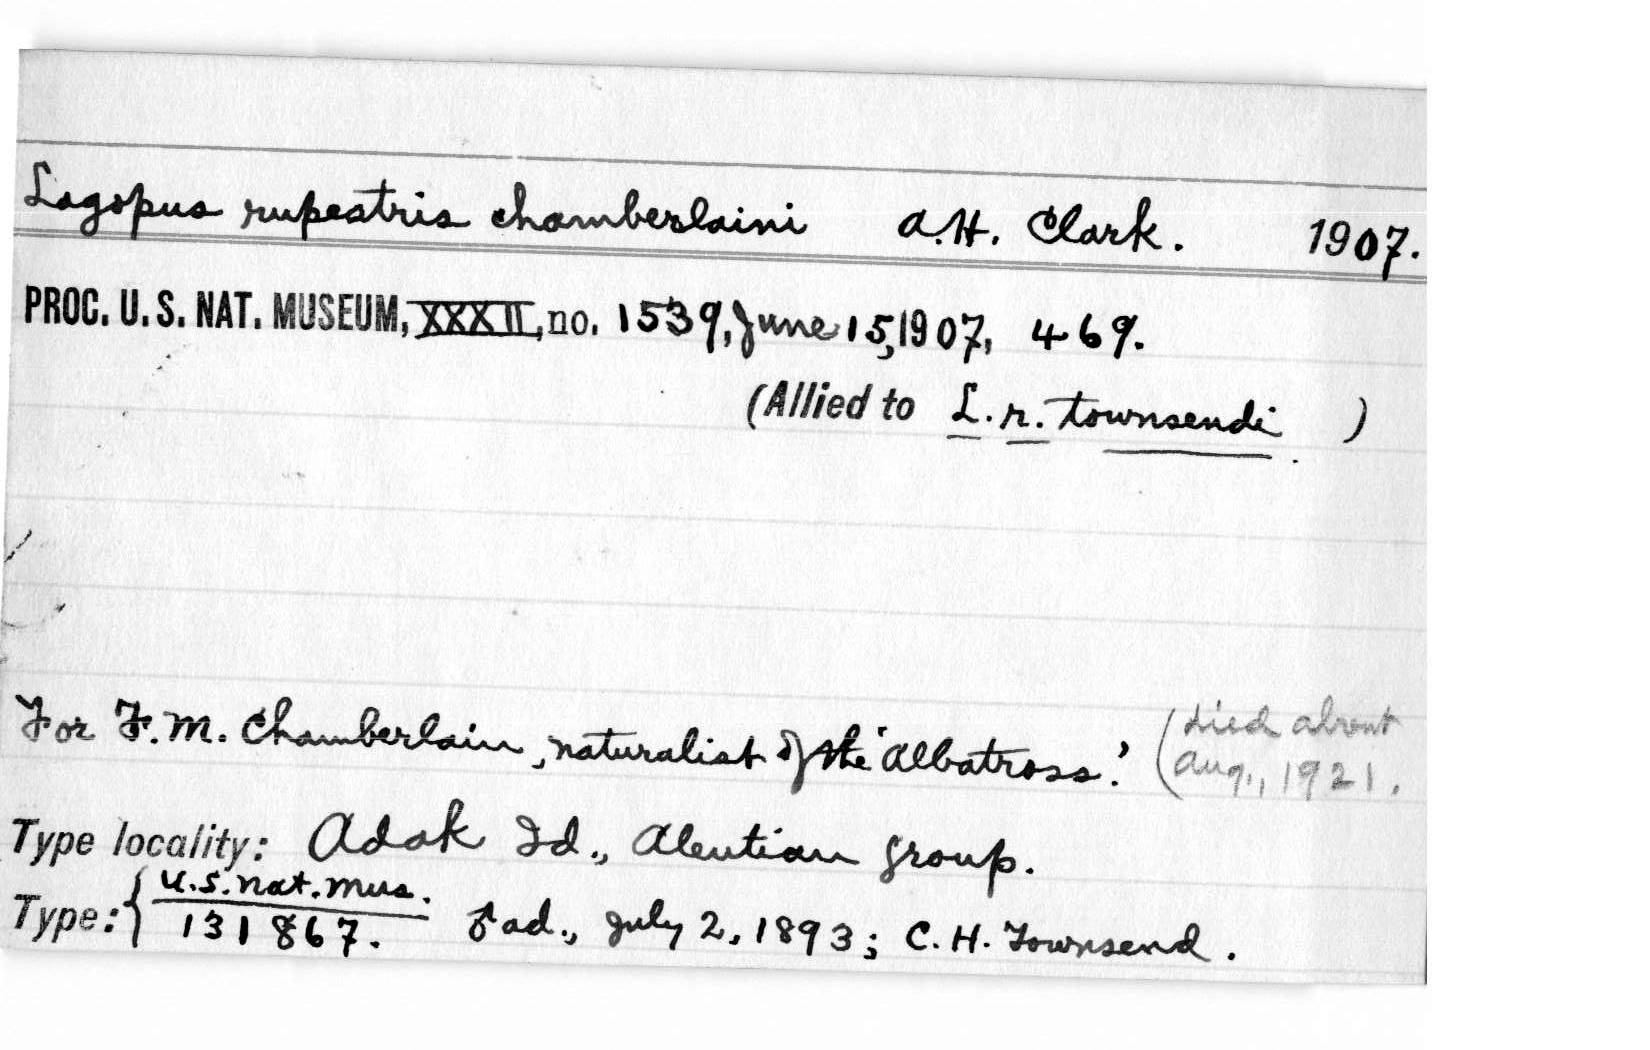 Lagopus rupestris chamberlaini A.H. Clark. 1907.
PROC. U.S. NAT. MUSEUM, XXXII, no. 1539, June 15, 1907, 469.
(Allied to L. r. townsendi )
For F. M. Chamberlain, naturalist of the "Albatross." (Died about
Aug., 1921.
Type locality: Adak Id., Aleutian group.
Type: { U.S. Nat. Mus.
131867. ♂ ad., July 2, 1893; C. H. Townsend.